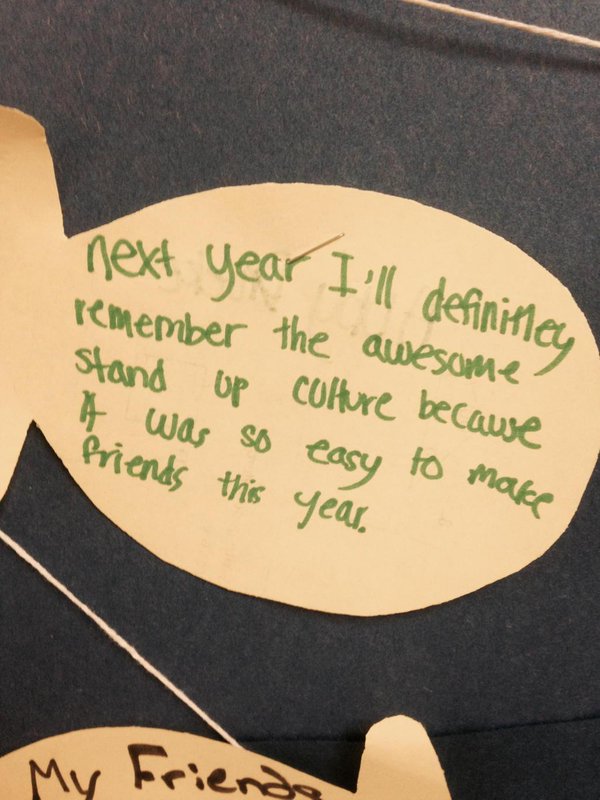 next year I'll definitley
remember the awesome
stand up culture because
it was so easy to make
friends this year.
My Friends